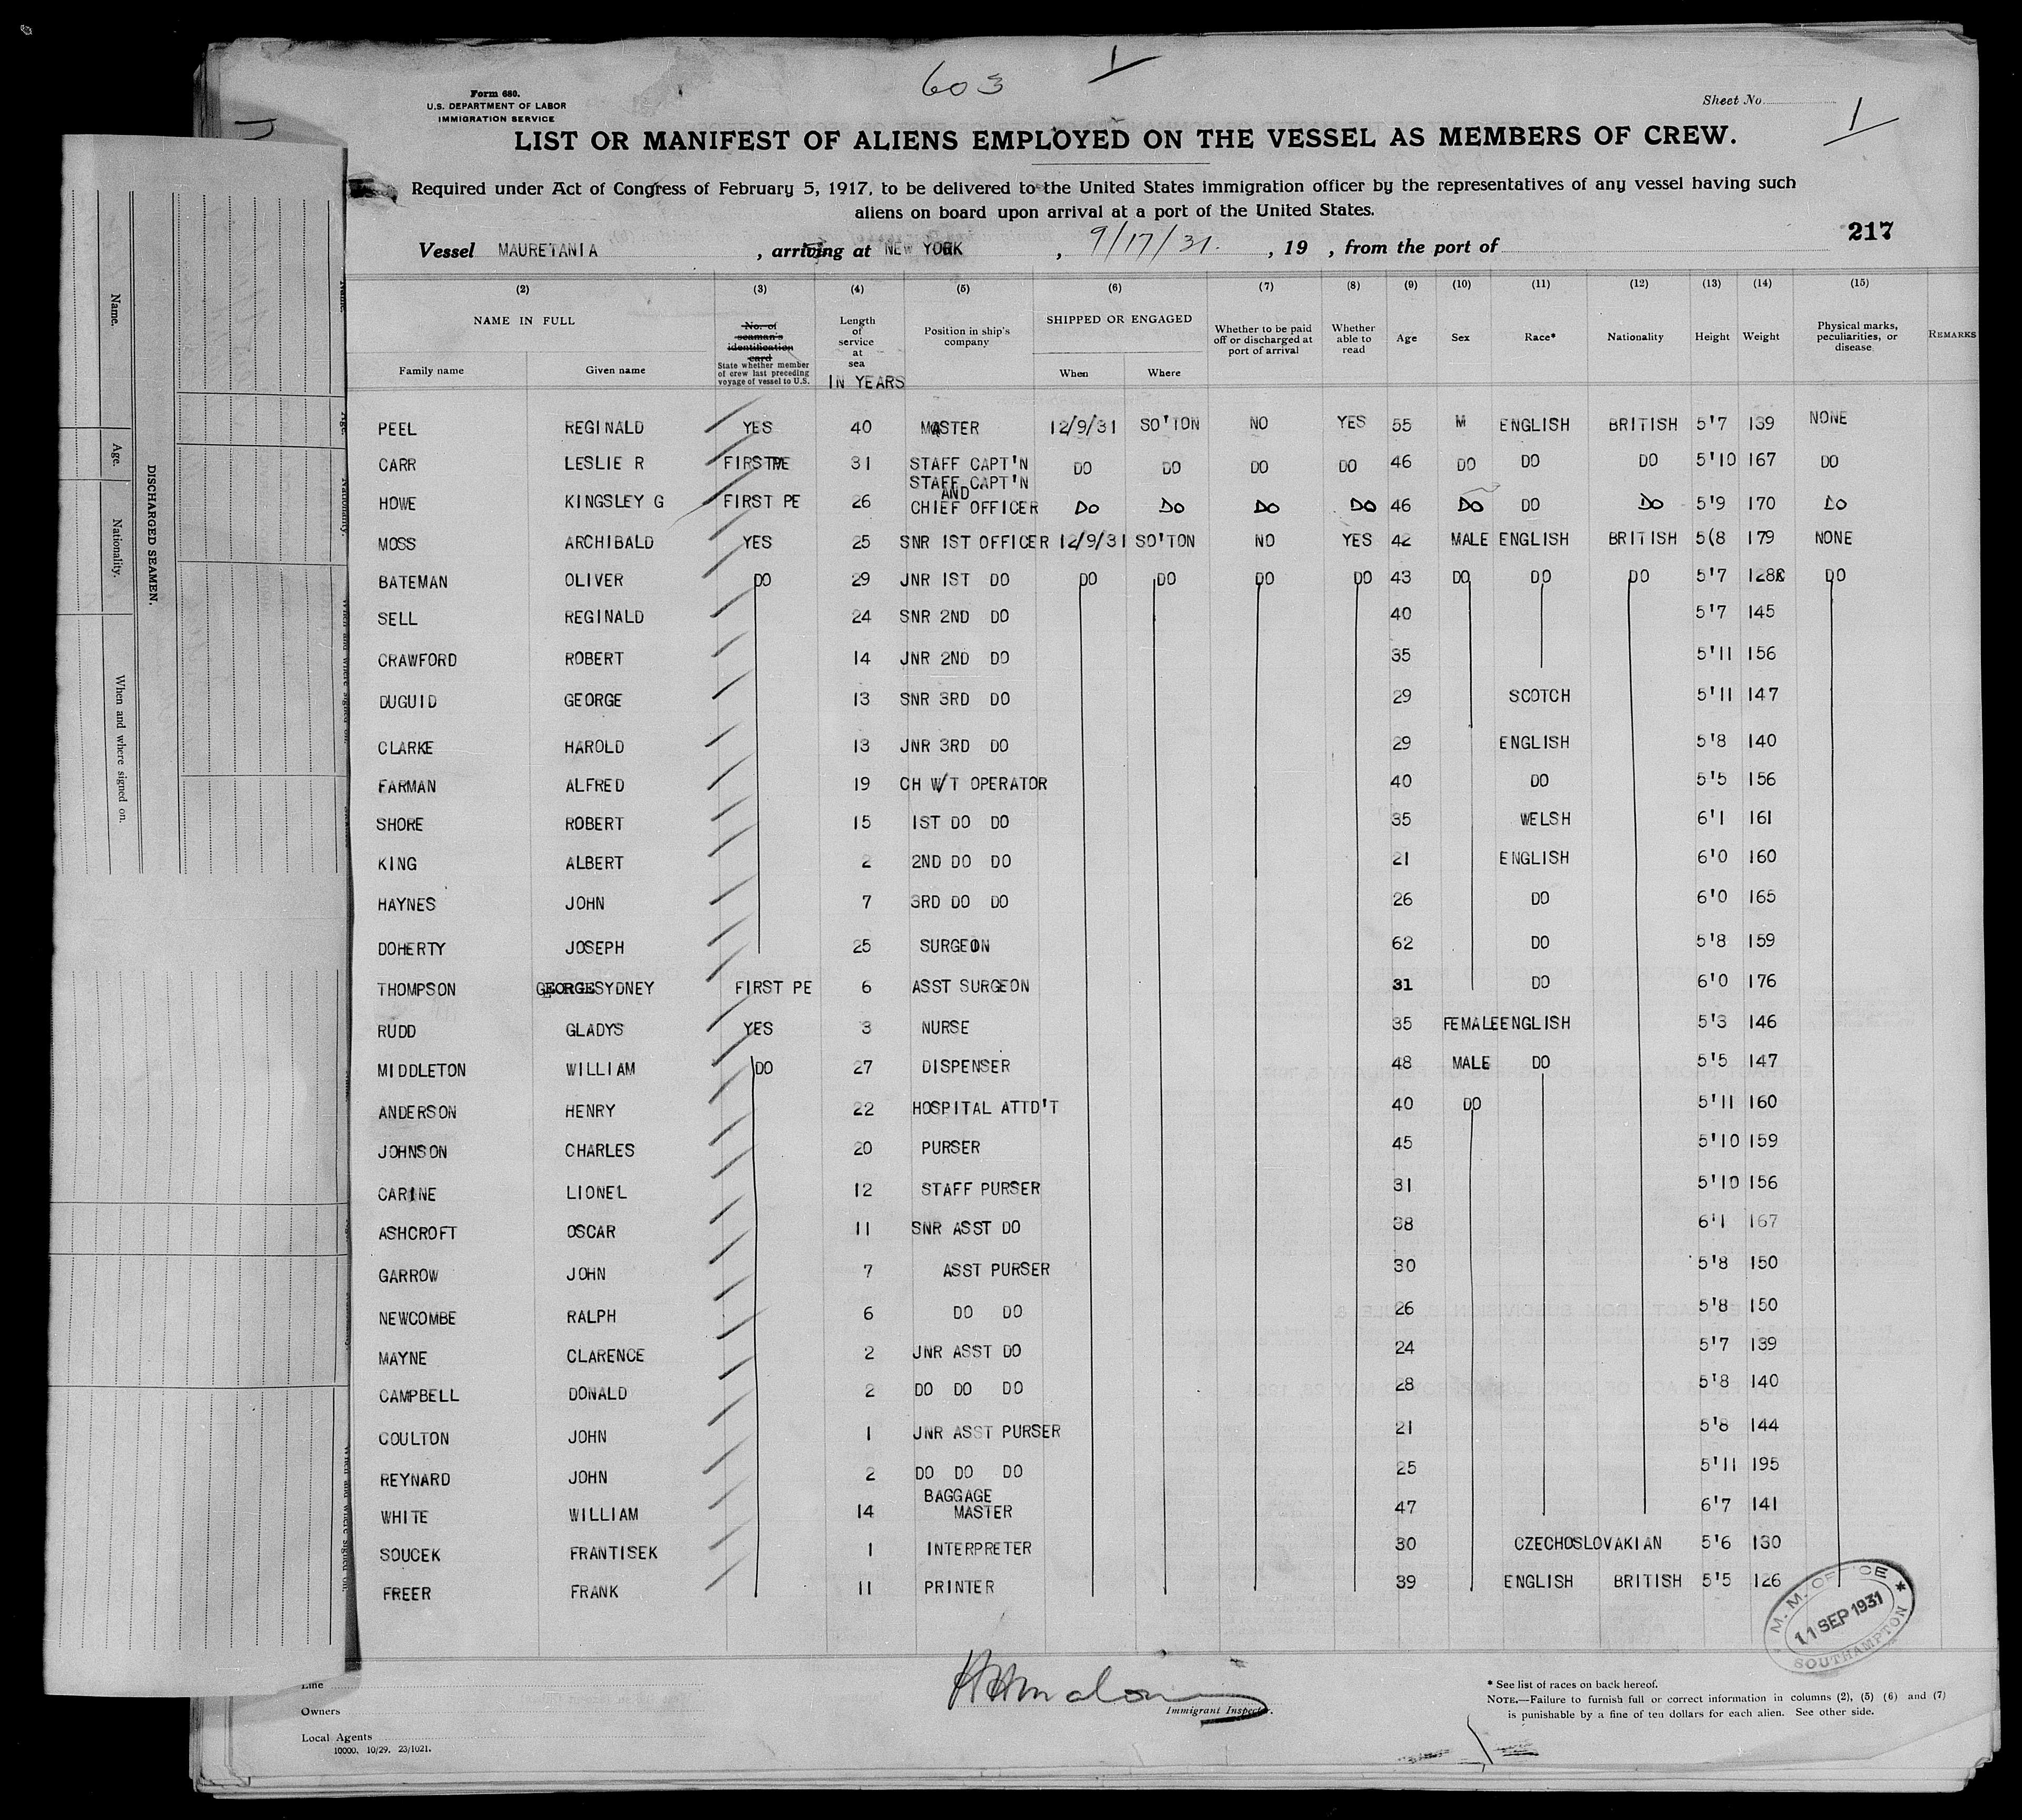 603 1
Form 680.
U.S. DEPARTMENT OF LABOR
IMMIGRATION SERVICE
Sheet No. 1
LIST OR MANIFEST OF ALIENS EMPLOYED ON THE VESSEL AS MEMBERS OF CREW.
Required under Act of Congress of February 5, 1917, to be delivered to the United States immigration officer by the representatives of any vessel having such
aliens on board upon arrival at a port of the United States.
217
Vessel MAURETANIA , arriving at NEW YORK , 9/17/31. , 19 , from the port of
(2) (3) (4) (5) (6) (7) (8) (9) (10) (11) (12) (13) (14) (15)
NAME IN FULL
Family name Given name
No. of seaman's identification card
State whether member of crew last preceding voyage of vessel to U.S.
Length of service at sea IN YEARS
Position in ship's company
SHIPPED OR ENGAGED
When Where
Whether to be paid off or discharged at port of arrival
Whether able to read
Age Sex Race* Nationality Height Weight
Physical marks, peculiarities, or disease
REMARKS
PEEL REGINALD YES 40 MASTER 12/9/31 SO'TON NO YES 55 M ENGLISH BRITISH 5'7 139 NONE
CARR LESLIE R FIRST PE 31 STAFF CAPT'N DO DO DO DO 46 DO DO DO 5'10 167 DO
HOWE KINGSLEY G FIRST PE 26 STAFF CAPT'N AND CHIEF OFFICER DO DO DO DO 46 DO DO DO 5'9 170 DO
MOSS ARCHIBALD YES 25 SNR 1ST OFFICER 12/9/31 SO'TON NO YES 42 MALE ENGLISH BRITISH 5(8 179 NONE
BATEMAN OLIVER DO 29 JNR 1ST DO DO DO DO DO 43 DO DO DO 5'7 128 DO
SELL REGINALD 24 SNR 2ND DO 40 5'7 145
CRAWFORD ROBERT 14 JNR 2ND DO 35 5'11 156
DUGUID GEORGE 13 SNR 3RD DO 29 SCOTCH 5'11 147
CLARKE HAROLD 13 JNR 3RD DO 29 ENGLISH 5'8 140
FARMAN ALFRED 19 CH W/T OPERATOR 40 DO 5'5 156
SHORE ROBERT 15 1ST DO DO 35 WELSH 6'1 161
KING ALBERT 2 2ND DO DO 21 ENGLISH 6'0 160
HAYNES JOHN 7 3RD DO DO 26 DO 6'0 165
DOHERTY JOSEPH 25 SURGEON 62 DO 5'8 159
THOMPSON GEORGE SYDNEY FIRST PE 6 ASST SURGEON 31 DO 6'0 176
RUDD GLADYS YES 3 NURSE 35 FEMALE ENGLISH 5'3 146
MIDDLETON WILLIAM DO 27 DISPENSER 48 MALE DO 5'5 147
ANDERSON HENRY 22 HOSPITAL ATTD'T 40 DO 5'11 160
JOHNSON CHARLES 20 PURSER 45 5'10 159
CARINE LIONEL 12 STAFF PURSER 31 5'10 156
ASHCROFT OSCAR 11 SNR ASST DO 38 6'1 167
GARROW JOHN 7 ASST PURSER 30 5'8 150
NEWCOMBE RALPH 6 DO DO 26 5'8 150
MAYNE CLARENCE 2 JNR ASST DO 24 5'7 139
CAMPBELL DONALD 2 DO DO DO 28 5'8 140
COULTON JOHN 1 JNR ASST PURSER 21 5'8 144
REYNARD JOHN 2 DO DO DO 25 5'11 195
WHITE WILLIAM 14 BAGGAGE MASTER 47 6'7 141
SOUCEK FRANTISEK 1 INTERPRETER 30 CZECHOSLOVAKIAN 5'6 130
FREER FRANK 11 PRINTER 39 ENGLISH BRITISH 5'5 126
M. M. OFFICE
11 SEP 1931
SOUTHAMPTON
Line
Owners
Local Agents
10000. 10/29. 23/1021.
Immigrant Inspector.
* See list of races on back hereof.
NOTE.—Failure to furnish full or correct information in columns (2), (5) (6) and (7)
is punishable by a fine of ten dollars for each alien. See other side.
DISCHARGED SEAMEN.
Name. Age. Nationality. When and where signed on.